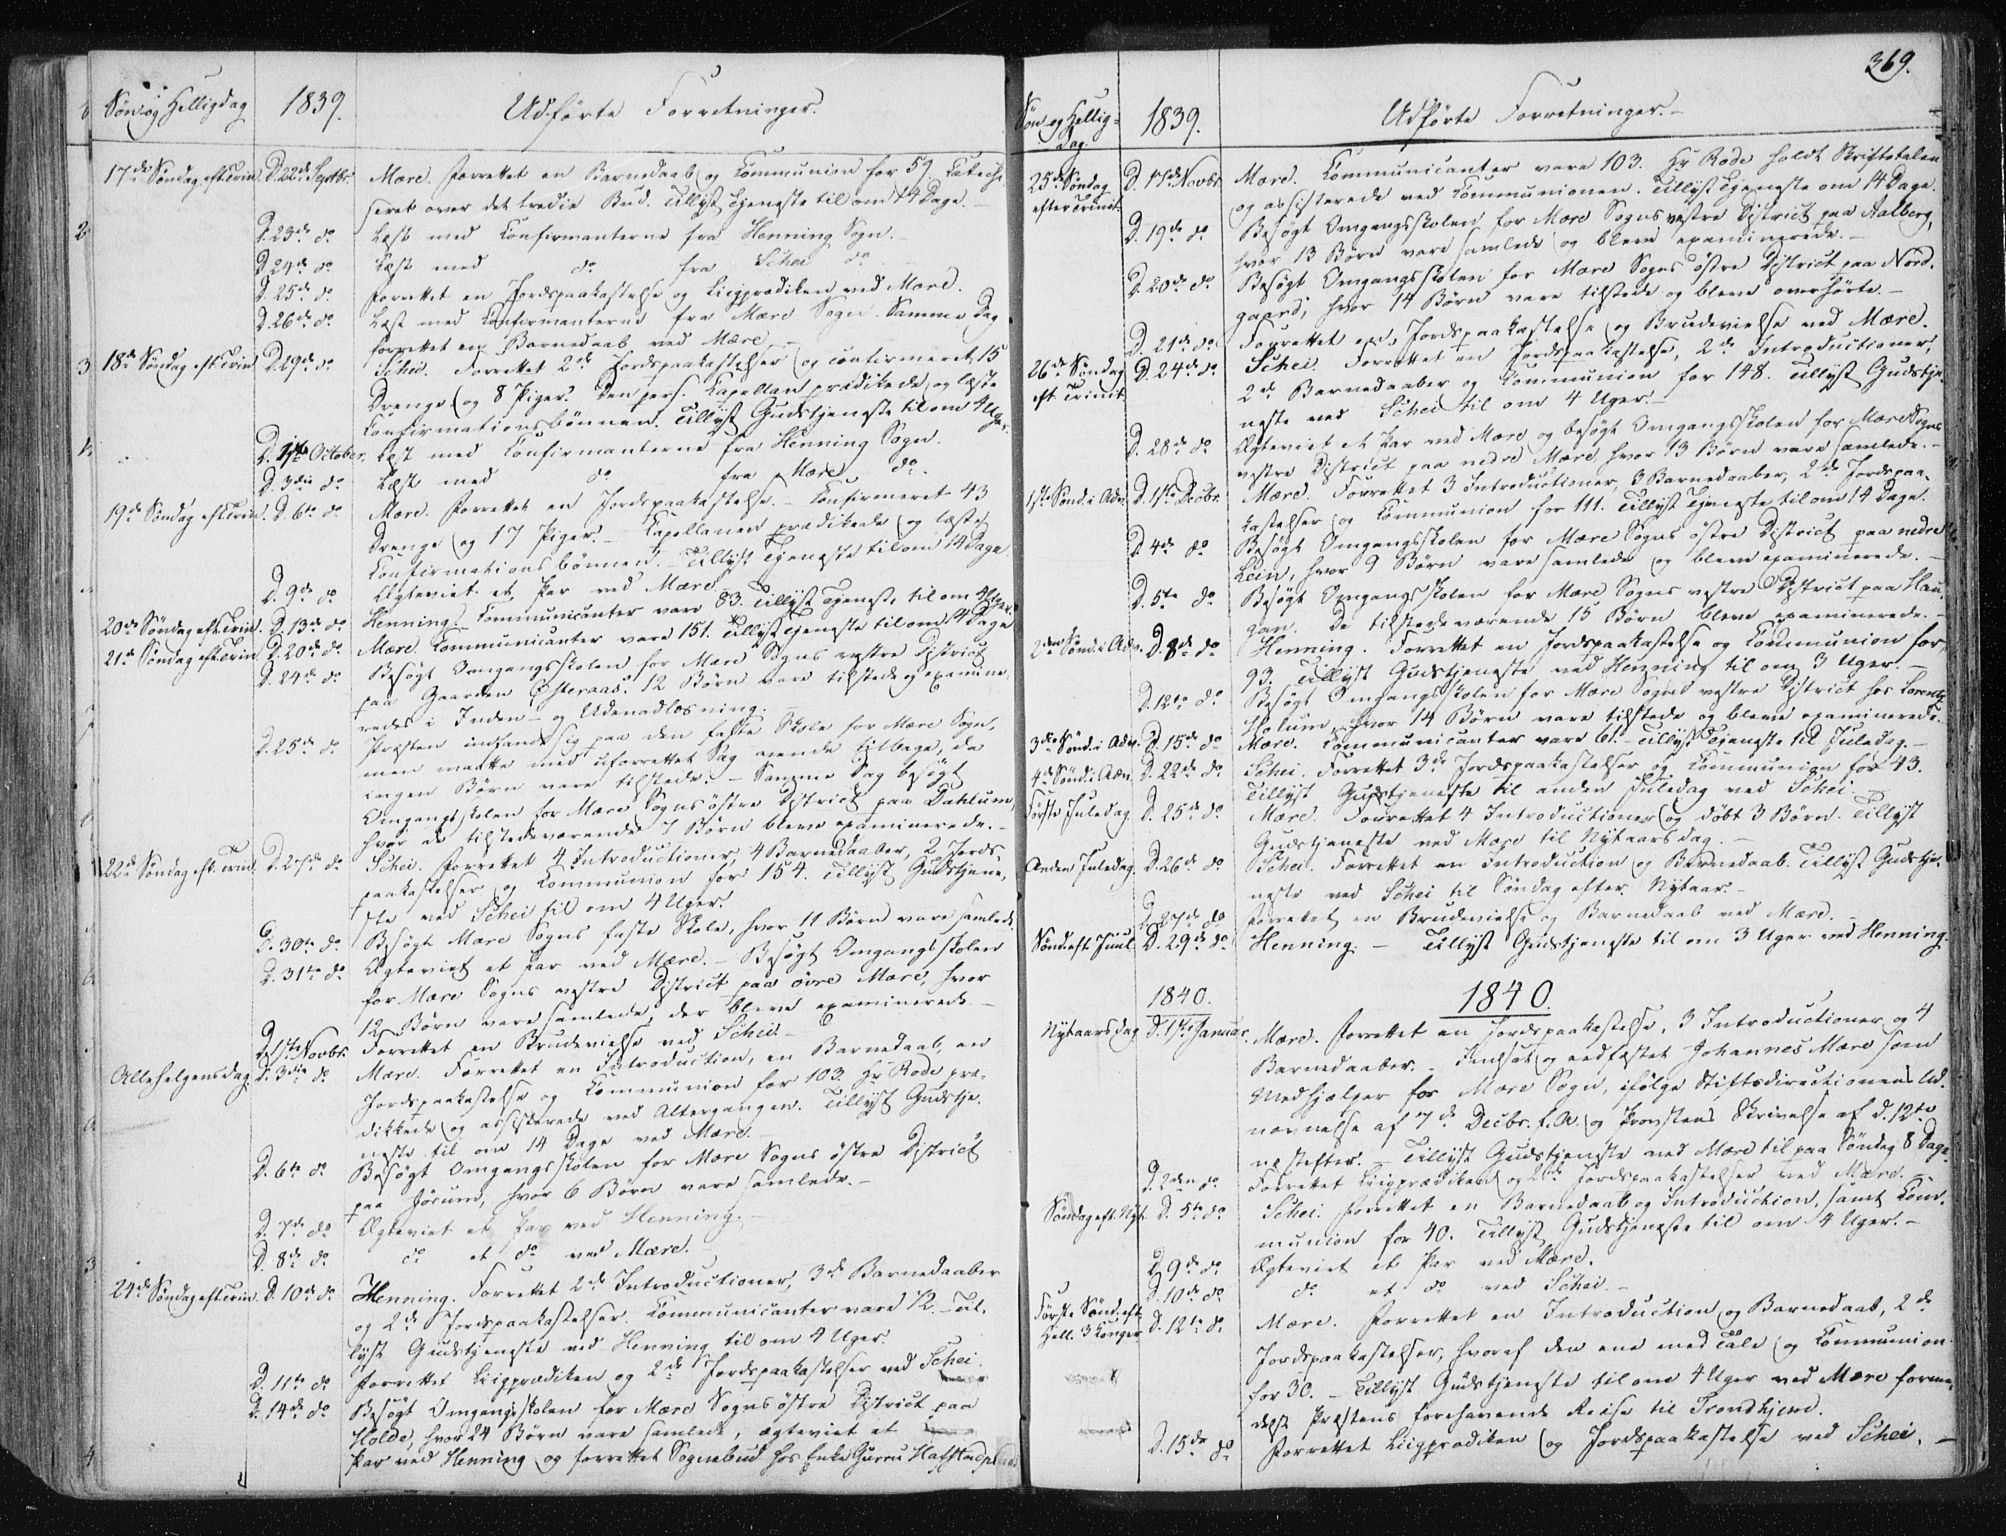 Søn- og Helligdag 1839. Udførte Forretninger.
17de Søndag eft Trin. D. 22de Septbr. Mære. Forrettet en Barnedaab og Communion for 59. Catechi-
seret over det tredie Bud. Tillyst Tjeneste til om 14 Dage. -
D. 23de do Læst med Confirmanterne fra Henning Sogn. -
D. 24de do Læst med do fra Schei do -
D. 25de do Forrettet en Jordspaakastelse og Liigprædiken ved Mære.
D. 26de do Læst med Confirmanterne fra Mære Sogn. Samme Dag
forrettet en Barnedaab ved Mære. -
18de Søndag eft Trin D. 29de do Schei. Forrettet 2de Jordspaakastelser og confirmeret 15
Drenge og 8 Piger. Den pers. Kapellan prædikede og læste
Confirmationsbønnen. Tillyst Gudstjeneste til om 4 Uger.
D. 1ste October. Læst med Confirmanterne fra Henning Sogn.
D. 3die do Læst med do fra Mære do.
19de Søndag eft Trin. D. 6te do Mære. Forrettet en Jordspaakastelse. - Confirmeret 43
Drenge og 17 Piger. - Kapellanen prædikede og læste
Confirmationsbønnen. - Tillyst Tjeneste til om 14 Dage.
D. 9de do Ægteviet et Par ved Mære.
20de Søndag eft Trin. D. 13de do Henning. Communicanter vare 83. Tillyst Tjeneste til om 4 Uger.
21de Søndag eft Trin D. 20de do Mære. Communicanter vare 151. Tillyst Tjeneste til om 14 Dage
D. 24de do Besøgt Omgangsskolen for Mære Sogns vestre District
paa Gaarden Østeraas. 12 Børn vare tilstede og examine-
redes i Inden- og Udenadlæsning.
D. 25de do Præsten indfandt sig paa den faste Skole for Mære Sogn,
men maatte med uforrettet Sag vende tilbage, da
ingen Børn vare tilstede. - Samme Dag besøgt
Omgangsskolen for Mære Sogns østre District paa Dahlum,
hvor de tilstedeværende 7 Børn bleve examinerede. -
22de Søndag eft. Trin D. 27de do Schei. Forrettet 4 Introductioner, 4 Barnedaaber, 2 Jords-
paakastelser og Communion for 154. Tillyst Gudstjene-
ste ved Schei til om 4 Uger.
D. 30te do Besøgt Mære Sogns faste Skole, hvor 11 Børn vare samlede.
D. 31te do Ægteviet et Par ved Mære. - Besøgt Omgangsskolen
for Mære Sogns vestre District paa øvre Mære, hvor
12 Børn vare samlede, der bleve examinerede -
D. 1ste Novbr. Forrettet en Brudevielse ved Schei -
Allehelgensdag. D. 3die do Mære. Forrettet en Introduction, en Barnedaab, en
Jordspaakastelse og Communion for 103. Hr Rode præ-
dikkede og assisterede ved Altergangen. Tillyst Gudstje-
neste til om 14 Dage ved Mære. -
D. 6te do Besøgt Omgangsskolen for Mære Sogns østre District
paa Jørum, hvor 6 Børn vare samlede. -
D. 7de do Ægteviet et Par ved Henning. -
D. 8de do do et do ved Mære. -
24de Søndag eft Trin. D. 10de do Henning. Forrettet 2de Introductioner, 3de Barnedaaber
og 2de Jordspaakastelser. Communicanter vare 72. - Til-
lyst Gudstjeneste ved Henning til om 4 Uger.
D. 11te do Forrettet Liigprædiken og 2de Jordspaakastelser ved Schei.
D. 14de do Besøgt Omgangsskolen for Mære Sogns østre District paa
Holde, hvor 24 Børn vare samlede, ægteviet et
Par ved Henning og forrettet Sognebud hos Enke Gurru Hafstad

369.
Søn- og Hellig-
dag. 1839. Udførte Forretninger. -
25de Søndag
efter Trinit. D. 17de Novbr. Mære. Communicanter vare 103. Hr Rode holdt Skriftetalen
og assisterede ved Communionen. Tillyst Tjeneste om 14 Dage.
D. 19de do Besøgt Omgangsskolen for Mære Sogns vestre District paa Aalberg,
hvor 13 Børn vare samlede og bleve examinerede. -
D. 20de do Besøgt Omgangsskolen for Mære Sogns østre District paa Nord-
gaard, hvor 14 Børn vare tilstede og bleve overhørte. -
D. 21de do Forrettet en Jordspaakastelse og Brudevielse ved Mære.
26de Søndag
eft Trinit D. 24de do Schei. Forrettet en Jordspaakastelse, 2de Introductioner,
2de Barnedaaber og Communion for 148. Tillyst Gudstje-
neste ved Schei til om 4 Uger. -
D. 28de do Ægteviet et Par ved Mære og besøgt Omgangsskolen for Mære Sogns
vestre District paa nedre Mære hvor 13 Børn vare samlede. -
1ste Sønd. i Adv. D. 1ste Decbr. Mære. Forrettet 3 Introductioner, 3 Barnedaaber, 2de Jordspaa-
kastelser og Communion for 111. Tillyst Tjeneste til om 14 Dage.
D. 4de do Besøgt Omgangsskolen for Mære Sogns østre District paa nedre
Lein, hvor 9 Børn vare samlede og bleve examinerede. -
D. 5te do Besøgt Omgangsskolen for Mære Sogns vestre District paa Hau-
gan. De tilstedeværende 15 Børn bleve examinerede. -
2den Sønd. i Adv. D. 8de do Henning. Forrettet en Jordspaakastelse og Communion for
93. Tillyst Gudstjeneste ved Henning til om 3 Uger. -
D. 12te do Besøgt Omgangsskolen for Mære Sogns vestre District hos Lorentz
Holum, hvor 14 Børn vare tilstede og bleve examinerede. -
3die Sønd. i Adv. D. 15de do Mære. Communicanter vare 61. Tillyst Tjeneste til Juledag. -
4de Sønd. i Adv. D. 22de do Schei. Forrettet 3de Jordspaakastelser og Communion for 43.
Tillyst Gudstjeneste til anden Juledag ved Schei.
Første Juledag D. 25de do Mære. Forrettet 4 Introductioner og døbt 3 Børn. Tillyst
Gudstjeneste ved Mære til Nytaarsdag. -
Anden Juledag. D. 26de do Schei. Forrettet en Introduction og Barnedaab. Tillyst Gudstje-
neste ved Schei til Søndag efter Nytaar. -
D. 27de do Forrettet en Brudevielse og Barnedaab ved Mære. -
Sønd eft Juul D. 29de do Henning. - Tillyst Gudstjeneste til om 3 Uger ved Henning.
1840. 1840.
Nytaarsdag D. 1ste Januar. Mære. Forrettet en Jordspaakastelse, 3 Introductioner og 4
Barnedaaber. - Indsat og eedfæstet Johannes Mære som
Medhjælper for Mære Sogn, ifølge Stiftsdirectionens Ud-
nævnelse af 7de Decbr. f. A. og Provstens Skrivelse af d. 12te
næstefter. - Tillyst Gudstjeneste ved Mære til paa Søndag 8 Dage.
D. 2den do Forrettet Liigprædiken og 2de Jordspaakastelser ved Mære. -
Søndag eft. Nyt. D. 5te do Schei. Forrettet en Barnedaab og Introduction, samt Com-
munion for 40. Tillyst Gudstjeneste til om 4 Uger. -
D. 9de do Ægteviet et Par ved Mære.
D. 10de do do et do ved Schei. -
Første Sønd. eft
Hell. 3 Konger D. 12te do Mære. Forrettet en Introduction og Barnedaab, 2de
Jordspaakastelser, hvoraf den ene med Tale og Communion
for 30. - Tillyst Gudstjeneste til om 4 Uger ved Mære forme-
delst Præstens forehavende Reise til Trondhjem.
D. 15de do Forrettet Liigprædiken og Jordspaakastelse ved Schei. -